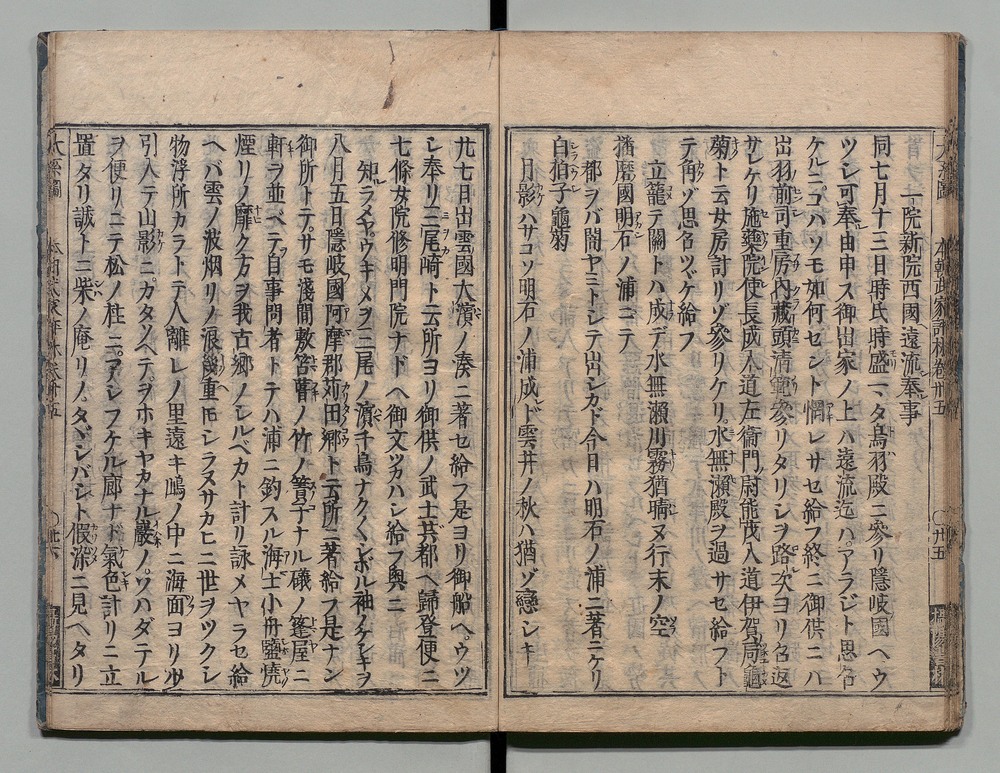 一院新院西國遠流奉事
同七月十三日時氏時盛マタ鳥羽殿ニ參リ隠岐國ヘウ
ツシ可奉由申ス御出家ノ上ハ遠流迄ハアラジト思召
ケルニコハソモ如何セント惘レサセ給フ終ニ御供ニハ
出羽前司重房内藏頭清範參リタリシヲ路次ヨリ召返
サレケリ施藥院使長成入道左衞門尉能茂入道伊賀局龜
菊ト云女房計リゾ參リケリ水無瀬殿ヲ過サセ給フト
テ角ゾ思召ツヾケ給フ
立籠テ關トハ成デ水無瀬川霧猶晴ヌ行末ノ空
播磨國明石ノ浦ニテ
都ヲバ闇ヤミトシテ出シカド今日ハ明石ノ浦ニ著ニケリ
白拍子龜菊
月影ハサコソ明石ノ浦成ド雲井ノ秋ハ猶ゾ戀シキ
本朝武家評林卷卅五
卅五
廿七日出雲國大濱ノ湊ニ著セ給フ是ヨリ御船ヘウツ
シ奉リ三尾崎ト云所ヨリ御供ノ武士共都ヘ歸登便ニ
七條女院修明門院ナドヘ御文ツカハシ給フ奥ニ
知ラメヤウキメヲ三尾ノ濱千鳥ナク〳〵シボル袖ノケシキヲ
八月五日隠岐國阿摩郡苅田郷ト云所ニ著給フ是ナン
御所トテサモ淺間敷苫葺ノ竹ノ簀子ナル礒ノ篷屋ニ
軒ヲ並ベテ自事問者トテハ浦ニ釣スル海士小舟鹽燒
煙リノ靡ク方ヲ我古郷ノシルベカト計リ詠メヤラセ給
ヘバ雲ノ波烟リノ浪幾重トモシラヌサカヒニ世ヲツクシ
物浮所カラトテ人離レノ里遠キ嶋ノ中ニ海面ヨリ少
引入テ山影ニカタソヘテヲホキヤカナル巖ノソハダテル
ヲ便リニテ松ノ柱ニアシフケル廊ナド氣色計リニ立
置タリ誠トニ柴ノ庵リノタヾシバシト假染ニ見ヘタリ